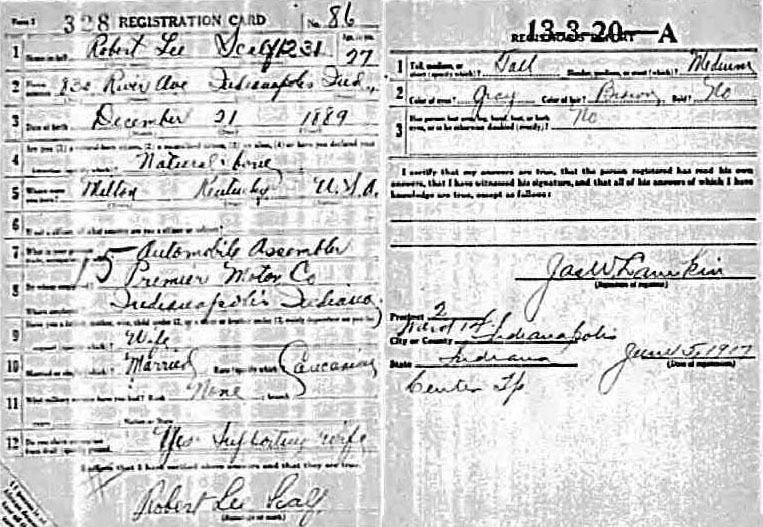 Form 1 328 REGISTRATION CARD No. 86
1 Name in full Robert Lee Scalf 1231 Age, in yrs. 27
2 Home address River Ave Indianapolis Ind.
3 Date of birth December 21 1889
4 Are you (1) a natural-born citizen, (2) a naturalized citizen, (3) an alien, (4) or have you declared your
intention (specify which)? Natural-born
5 Where were you born? Milton Kentucky U.S.A.
6 If not a citizen, of what country are you a citizen or subject?
7 What is your present Automobile Assembler
15
8 By whom employed? Premier Motor Co
Where employed? Indianapolis Indiana
9 Have you a father, mother, wife, child under 12, or a sister or brother under 12, solely dependent on you for
support (specify which)? Wife
10 Married or single (which)? Married Race (specify which)? Caucasian
11 What military service have you had? Rank None branch
years Nation or State
12 Do you claim exemption from draft (specify grounds)? Yes Supporting wife
I affirm that I have verified above answers and that they are true.
Robert Lee Scalf
(Signature or mark)
13-3-20-A
REGISTRAR'S REPORT
1 Tall, medium, or short (specify which)? Tall Slender, medium, or stout (which)? Medium
2 Color of eyes? Gray Color of hair? Brown Bald? No
3 Has person lost arm, leg, hand, foot, or both eyes, or is he otherwise disabled (specify)? No
I certify that my answers are true, that the person registered has read his own
answers, that I have witnessed his signature, and that all of his answers of which I have
knowledge are true, except as follows:
Jas W Lamkin
(Signature of registrar)
Precinct 2
Ward 14
City or County Indianapolis
State Indiana June 5, 1917
(Date of registration)
Center Tp